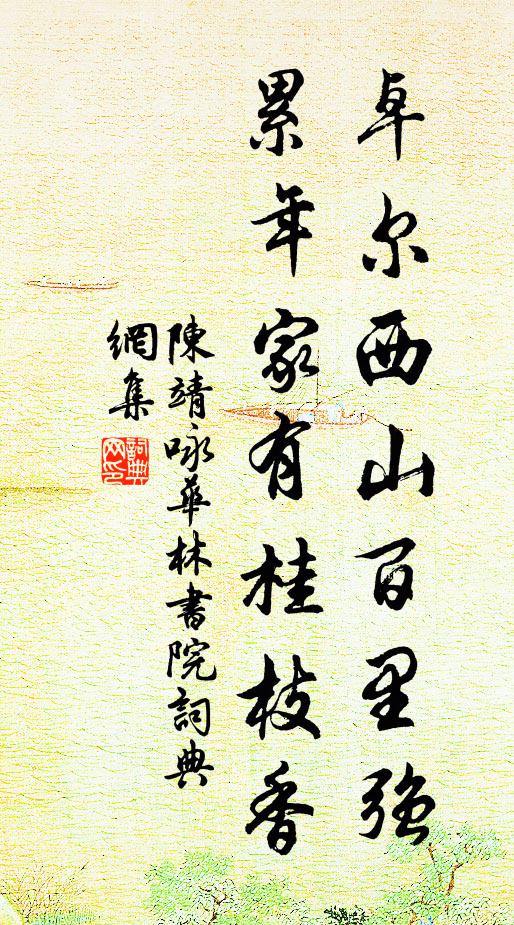 卓尔西山百里强
累年家有桂枝香
陳靖咏華林書院詞典
網集
詞典网印